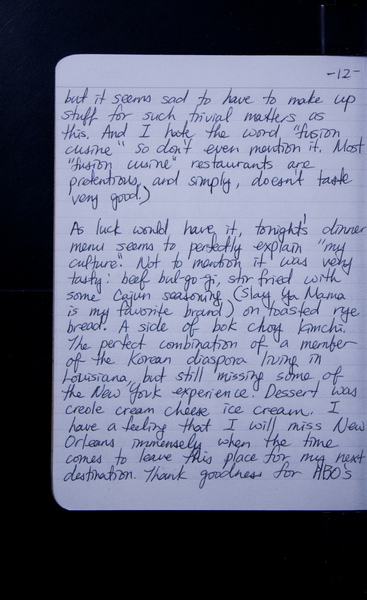 -12-
but it seems sad to have to make up
stuff for such trivial matters as
this. And I hate the word "fusion
cusine" so don't even mention it. Most
"fusion cusine" restaurants are
pretentious and simply, doesn't taste
very good.)
As luck would have it, tonight's dinner
menu seems to perfectly explain "my
culture". Not to mention it was very
tasty: beef bul-go-gi, stir fried with
some Cajun seasoning (Slap Ya Mama
is my favorite brand) on toasted rye
bread. A side of bok choy kimchi.
The perfect combination of a member
of the Korean diaspora living in
Louisiana, but still missing some of
the New York experience. Dessert was
creole cream cheese ice cream. I
have a feeling that I will miss New
Orleans immensely when the time
comes to leave this place for my next
destination. Thank goodness for HBO's